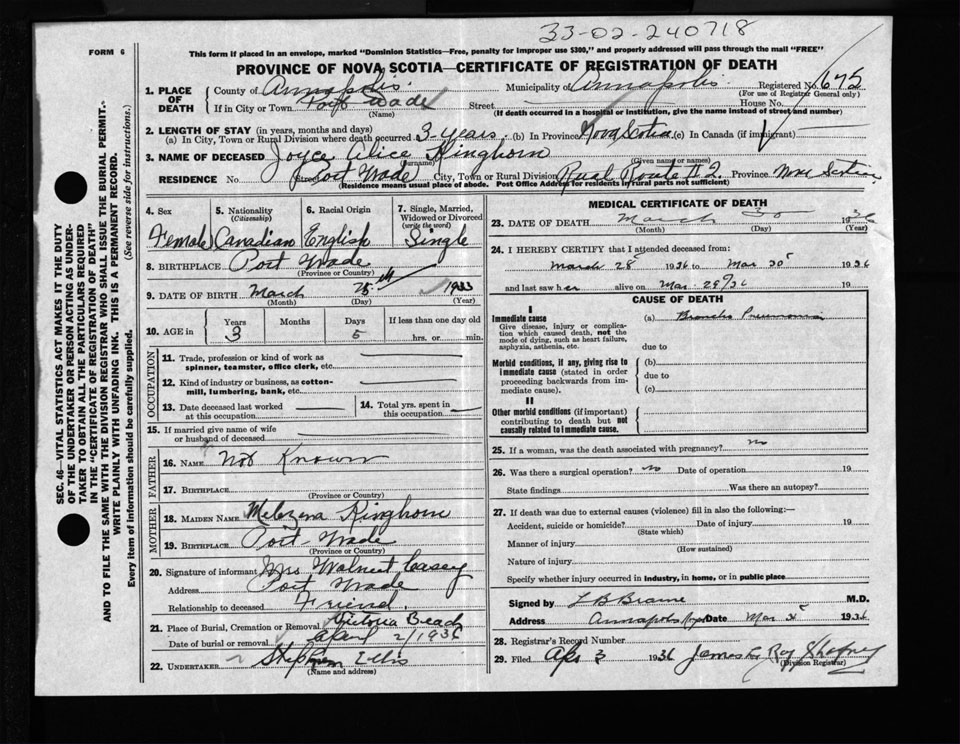 33-02-240718
FORM 6
This form if placed in an envelope, marked "Dominion Statistics—Free, penalty for improper use $300," and properly addressed will pass through the mail "FREE"
PROVINCE OF NOVA SCOTIA—CERTIFICATE OF REGISTRATION OF DEATH
1. PLACE OF DEATH
County of Annapolis Municipality of Annapolis Registered No. 675
(For use of Registrar General only)
If in City or Town Port Wade Street House No.
(Name) (If death occurred in a hospital or institution, give the name instead of street and number)
2. LENGTH OF STAY (in years, months and days)
(a) In City, Town or Rural Division where death occurred 3 years (b) In Province Nova Scotia (c) In Canada (if immigrant)
3. NAME OF DECEASED Joyce Alice Kinghorn
(Surname) (Given name or names)
RESIDENCE No. Street Port Wade City, Town or Rural Division Rural Route # 2 Province Nova Scotia
(Residence means usual place of abode. Post Office Address for residents in rural parts not sufficient)
SEC. 46—VITAL STATISTICS ACT MAKES IT THE DUTY
OF THE UNDERTAKER OR PERSON ACTING AS UNDER-
TAKER TO OBTAIN ALL THE PARTICULARS REQUIRED
IN THE "CERTIFICATE OF REGISTRATION OF DEATH"
AND TO FILE THE SAME WITH THE DIVISION REGISTRAR WHO SHALL ISSUE THE BURIAL PERMIT.
WRITE PLAINLY WITH UNFADING INK. THIS IS A PERMANENT RECORD.
Every item of information should be carefully supplied. (See reverse side for instructions.)
4. Sex 5. Nationality (Citizenship) 6. Racial Origin 7. Single, Married, Widowed or Divorced (write the word)
Female Canadian English Single
8. BIRTHPLACE Port Wade
(Province or Country)
9. DATE OF BIRTH March 25th 1933
(Month) (Day) (Year)
10. AGE in Years Months Days If less than one day old
3 5 hrs. or min.
OCCUPATION
11. Trade, profession or kind of work as
spinner, teamster, office clerk, etc.
12. Kind of industry or business, as cotton-
mill, lumbering, bank, etc.
13. Date deceased last worked
at this occupation
14. Total yrs. spent in
this occupation
15. If married give name of wife
or husband of deceased
FATHER
16. NAME Not Known
17. BIRTHPLACE
(Province or Country)
MOTHER
18. MAIDEN NAME Melezena Kinghorn
19. BIRTHPLACE Port Wade
(Province or Country)
20. Signature of informant Mrs Walnut Casey
Address Port Wade
Relationship to deceased Friend
21. Place of Burial, Cremation or Removal Victoria Beach
Date of burial or removal April 2/1936
22. UNDERTAKER Stephen Ellis
(Name and address)
MEDICAL CERTIFICATE OF DEATH
23. DATE OF DEATH March 30 1936
(Month) (Day) (Year)
24. I HEREBY CERTIFY that I attended deceased from:
March 28 1936 to Mar 30 1936
and last saw her alive on Mar 28/36 19
CAUSE OF DEATH
I
Immediate cause (a) Broncho Pneumonia
Give disease, injury or complica-
tion which caused death, not the
mode of dying, such as heart failure,
asphyxia, asthenia, etc. due to
Morbid conditions, if any, giving rise to (b)
immediate cause (stated in order due to
proceeding backwards from im-
mediate cause). (c)
II
Other morbid conditions (if important)
contributing to death but not
causally related to immediate cause.
25. If a woman, was the death associated with pregnancy? no
26. Was there a surgical operation? no Date of operation 19
State findings Was there an autopsy?
27. If death was due to external causes (violence) fill in also the following:—
Accident, suicide or homicide? Date of injury 19
(State which)
Manner of injury
(How sustained)
Nature of injury
Specify whether injury occurred in industry, in home, or in public place
Signed by L B Braine M.D.
Address Annapolis Royal Date Mar 1936
28. Registrar's Record Number
29. Filed Apr 3 1936 James Roy
(Division Registrar)